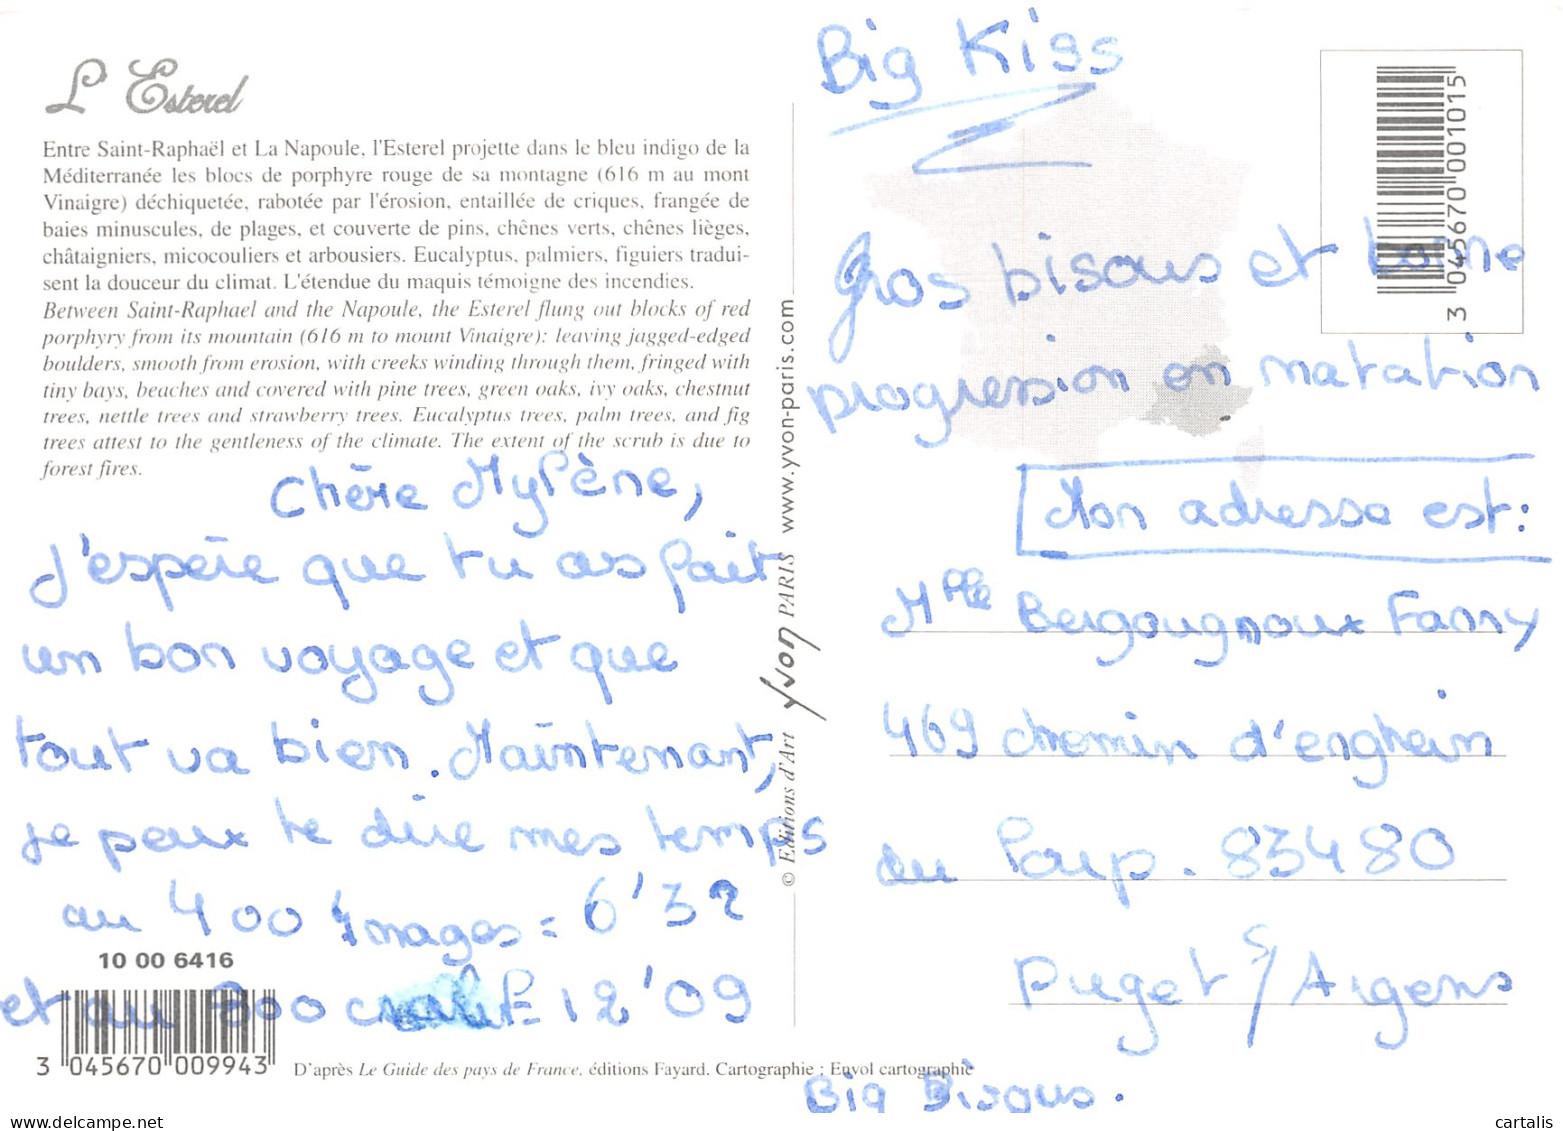 L'Esterel
Entre Saint-Raphaël et La Napoule, l'Esterel projette dans le bleu indigo de la
Méditerranée les blocs de porphyre rouge de sa montagne (616 m au mont
Vinaigre) déchiquetée, rabotée par l'érosion, entaillée de criques, frangée de
baies minuscules, de plages, et couverte de pins, chênes verts, chênes lièges,
châtaigniers, micocouliers et arbousiers. Eucalyptus, palmiers, figuiers tradui-
sent la douceur du climat. L'étendue du maquis témoigne des incendies.
Between Saint-Raphael and the Napoule, the Esterel flung out blocks of red
porphyry from its mountain (616 m to mount Vinaigre): leaving jagged-edged
boulders, smooth from erosion, with creeks winding through them, fringed with
tiny bays, beaches and covered with pine trees, green oaks, ivy oaks, chestnut
trees, nettle trees and strawberry trees. Eucalyptus trees, palm trees, and fig
trees attest to the gentleness of the climate. The extent of the scrub is due to
forest fires.
Chère Mylène,
J'espère que tu as fait
un bon voyage et que
tout va bien. Maintenant,
je peux te dire mes temps
au 400 4 nages = 6'32
et au 800 = 12'09
10 00 6416
3 045670 009943
D'après Le Guide des pays de France, éditions Fayard. Cartographie : Envol cartographie
© Editions d'Art Yvon PARIS www.yvon-paris.com
Big Kiss
3 045670 001015
Gros bisous et bonne
progression en natation
Mon adresse est:
Mlle Bergougnoux Fanny
469 chemin d'enghein
du Loup. 83480
Puget s/ Argens
Big Bisous.
cartalis